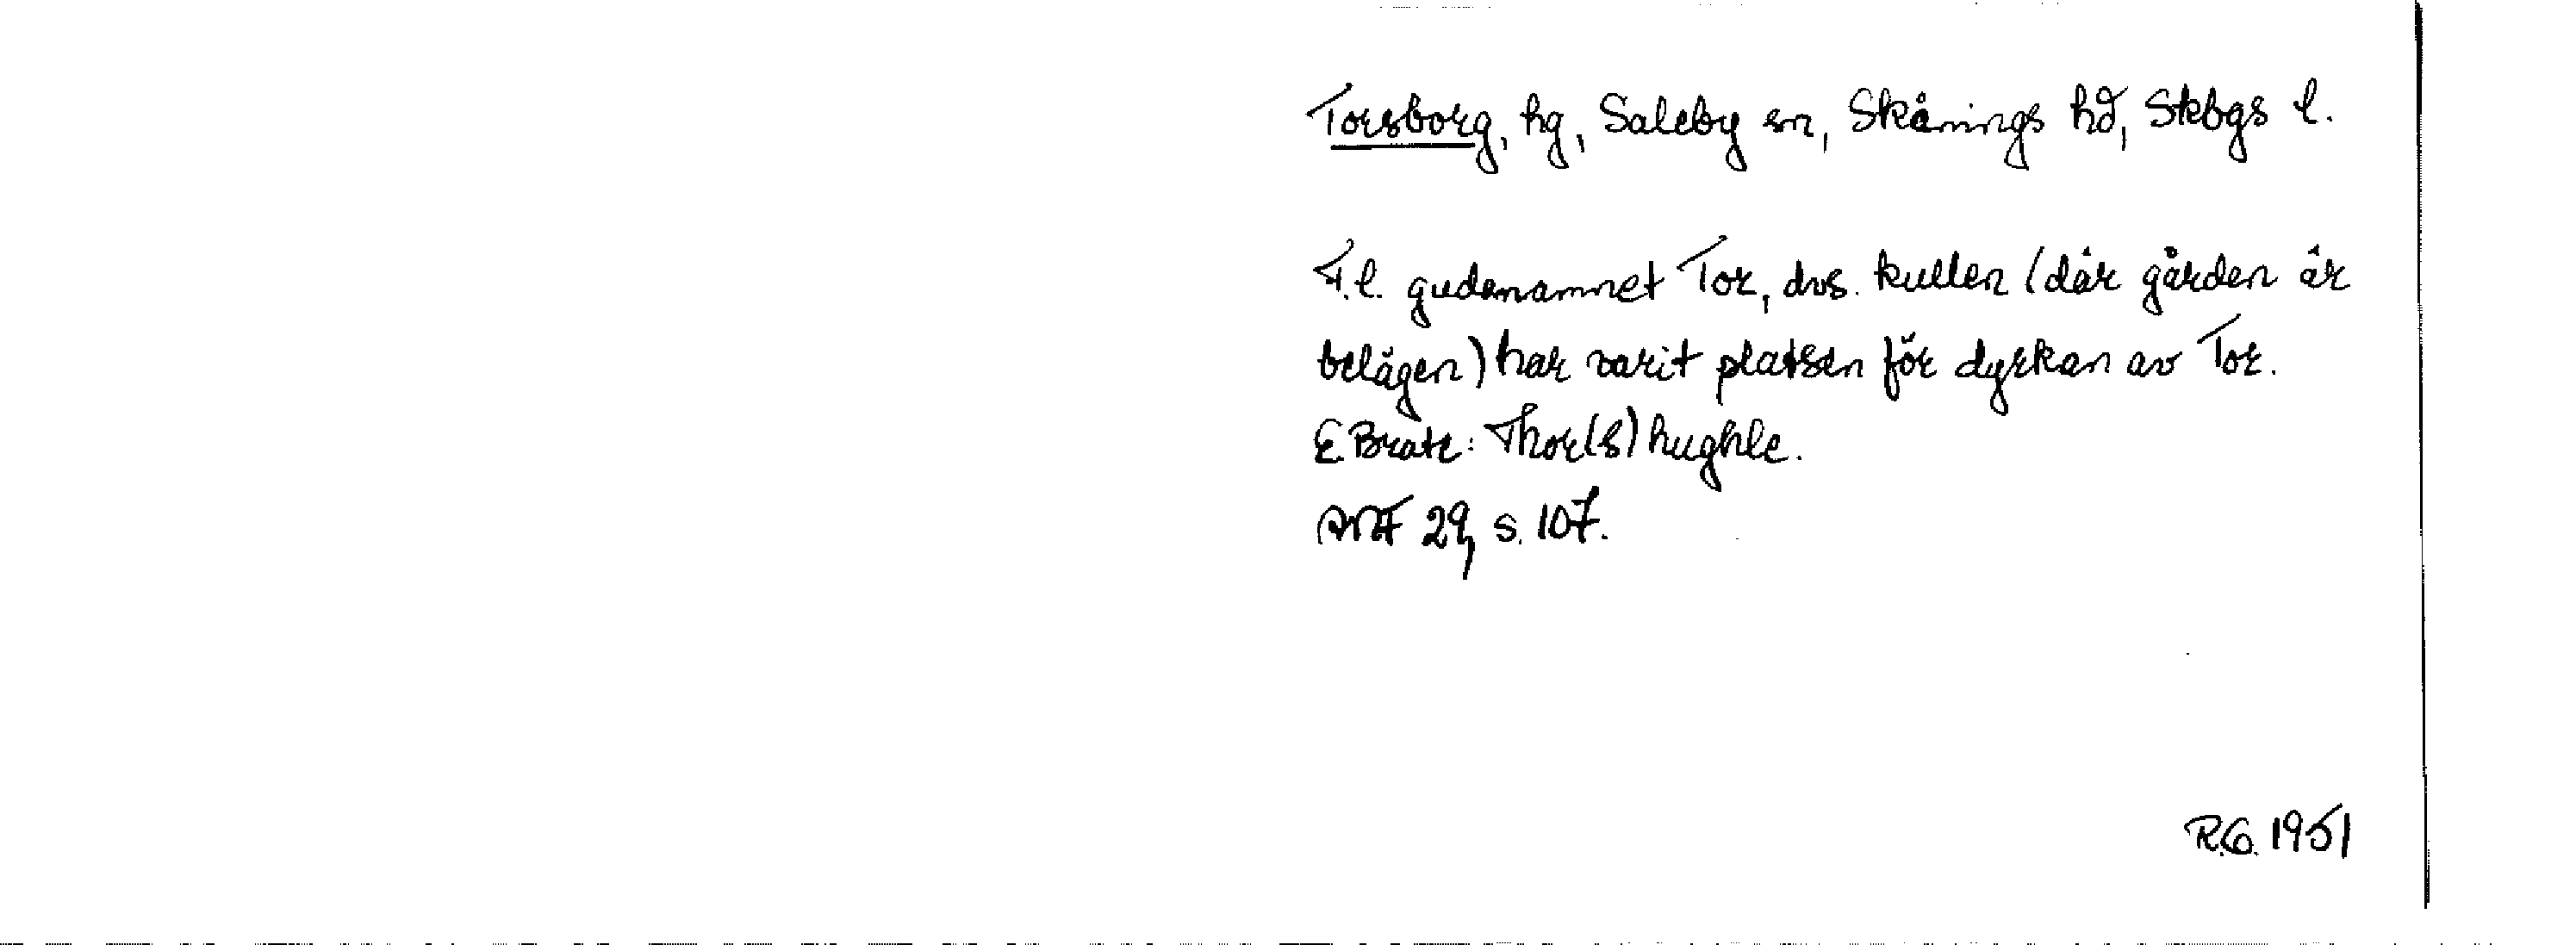 Torsborg, hg, Saleby sn, Skånings hd, Skbgs l.
F.l. gudanamnet Tor, dvs. kullen (där gården är
belägen) har varit platsen för dyrkan av Tor.
E. Brate: Thor(s)hughle.
ANF 29, s. 107.
R.G. 1951